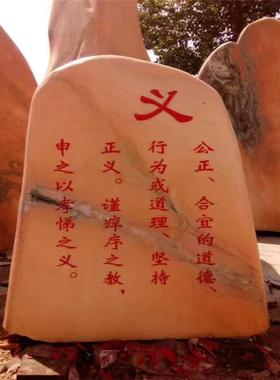 义
公正、合宜的道德、
行为或道理、坚持
正义。谨庠序之教，
申之以孝悌之义。